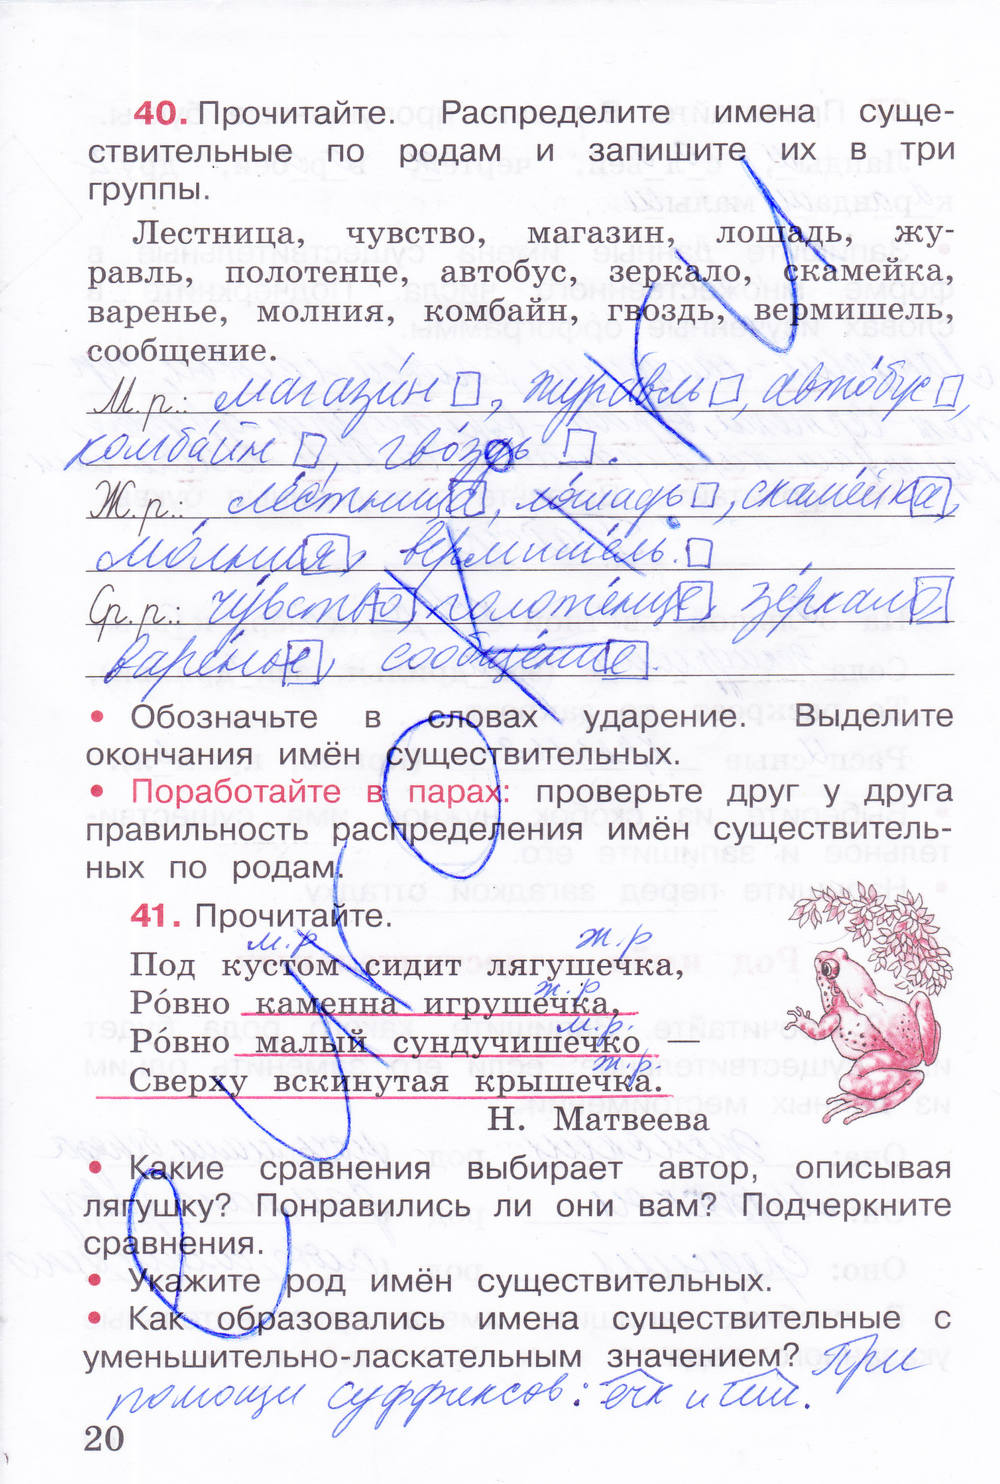 40. Прочитайте. Распределите имена суще-
ствительные по родам и запишите их в три
группы.
Лестница, чувство, магазин, лошадь, жу-
равль, полотенце, автобус, зеркало, скамейка,
варенье, молния, комбайн, гвоздь, вермишель,
сообщение.
М.р.: магази́н, жура́вль, авто́бус,
комба́йн, гво́здь.
Ж.р.: ле́стница, ло́шадь, скаме́йка,
мо́лния, вермише́ль.
Ср.р.: чу́вство, полоте́нце, зе́ркало,
варе́нье, сообще́ние.
• Обозначьте в словах ударение. Выделите
окончания имён существительных.
• Поработайте в парах: проверьте друг у друга
правильность распределения имён существитель-
ных по родам.
41. Прочитайте.
м.р ж.р
Под кустом сидит лягушечка,
ж.р
Ро́вно каменна игрушечка,
м.р.
Ро́вно малый сундучишечко —
ж.р
Сверху вскинутая крышечка.
Н. Матвеева
• Какие сравнения выбирает автор, описывая
лягушку? Понравились ли они вам? Подчеркните
сравнения.
• Укажите род имён существительных.
• Как образовались имена существительные с
уменьшительно-ласкательным значением? При
помощи суффиксов: ечк и
20